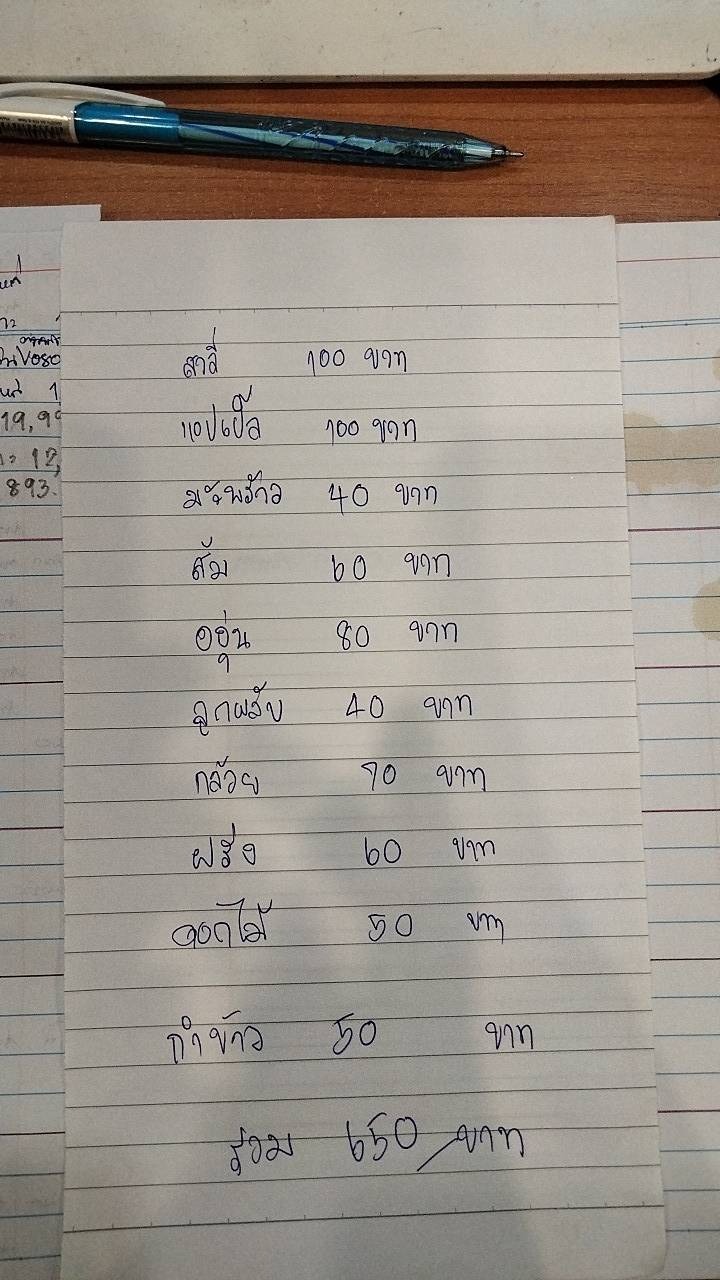 สาลี่ 100 บาท
แอปเปิ้ล 100 บาท
มะพร้าว 40 บาท
ส้ม 60 บาท
องุ่น 80 บาท
ลูกพลับ 40 บาท
กล้วย 70 บาท
ฝรั่ง 60 บาท
ดอกไม้ 50 บาท
กำข้าว 50 บาท
รวม 650 บาท
19,99
12,
893.